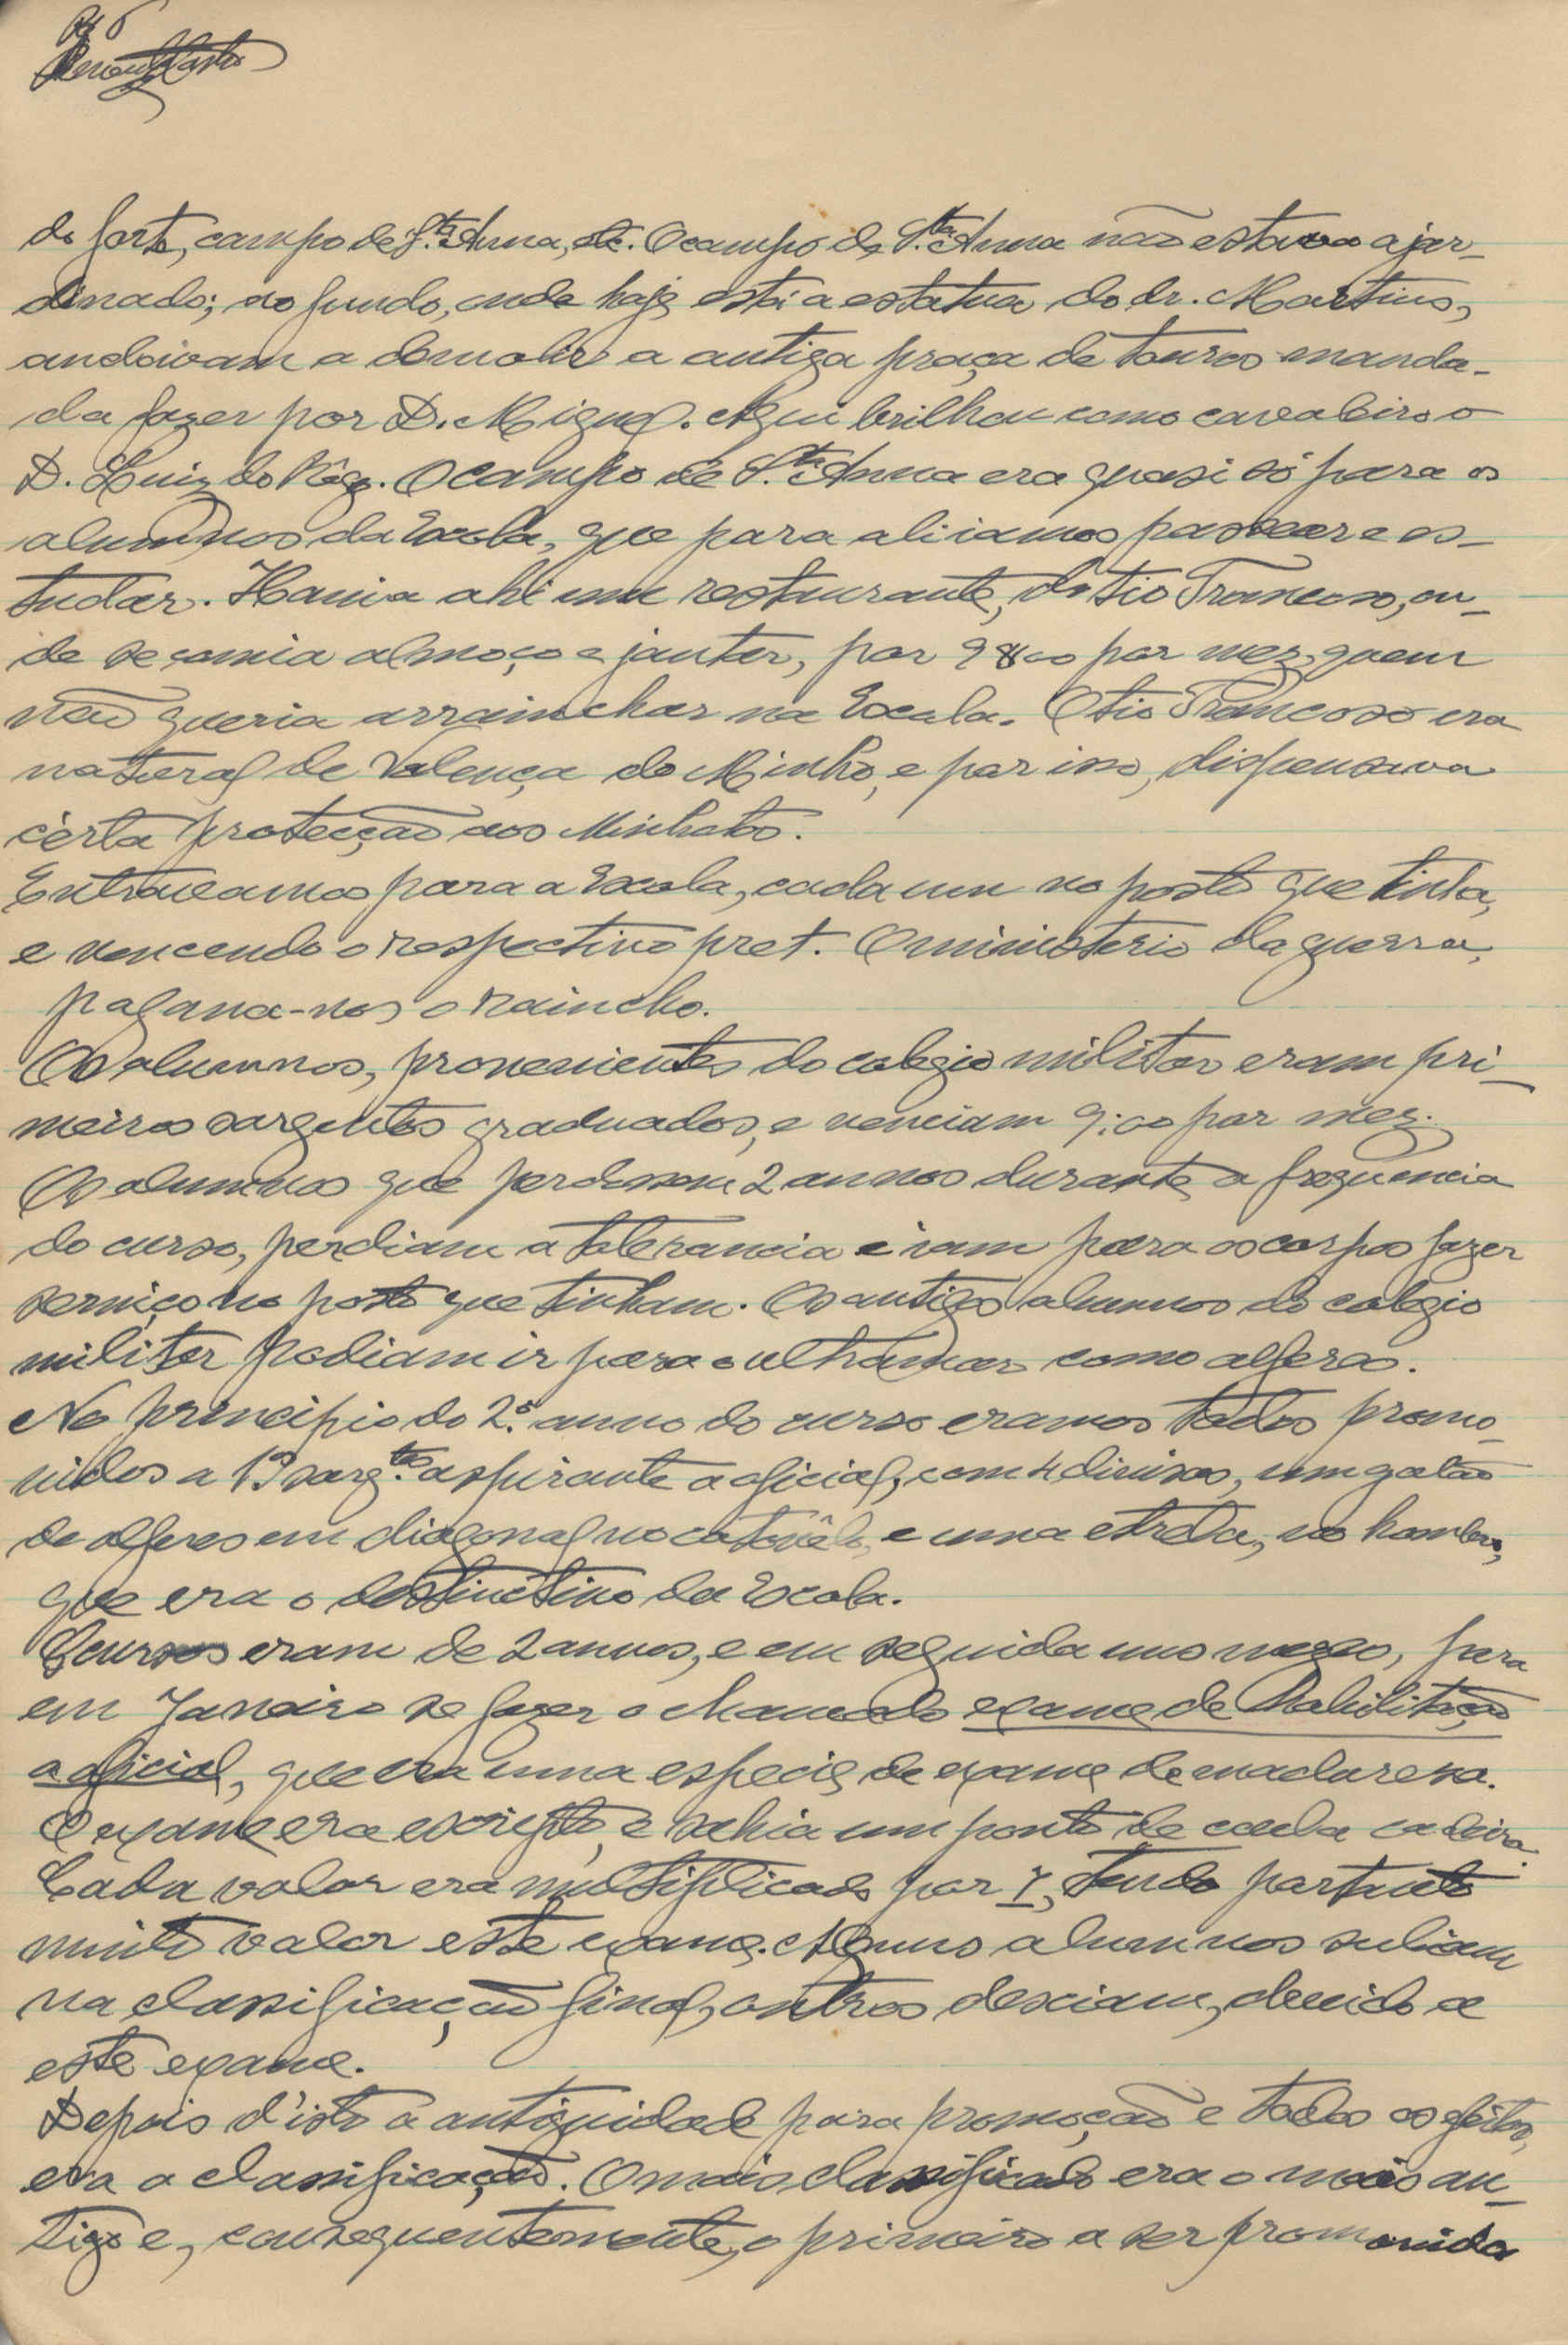 do forte, campo de S.ta Anna, etc. O campo de S.ta Anna não estava ajar-
dinado; no fundo, onde hoje está a estatua do dr. Martins,
andavam a demolir a antiga praça de touros manda-
da fazer por D. Miguel. Aqui brilhou como cavaleiro o
D. Luiz do Rêgo. O campo de S.ta Anna era quasi só para os
alumnos da Escola, que para ali iamos passear e es-
tudar. Havia ahi um restaurante, do tio Trancoso, on-
de se comia almoço e jantar, por 9$00 por mez, quem
não queria arrainchar na Escola. O tio Trancoso era
natural de Valença do Minho, e por isso, dispensava
cérta protecção aos Minhotos.
Entravamos para a Escola, cada um no posto que tinha,
e vencendo o respectivo pret. O ministerio da guerra,
pagava-nos o raincho.
Os alumnos, provenientes do colegio militar eram pri-
meiros sargentos graduados, e venciam 9:00 por mez.
Os alumnos que perdessem 2 annos durante a frequencia
do curso, perdiam a tolerancia e iam para os corpos fazer
serviço no posto que tinham. Os antigos alumnos do colegio
militar podiam ir para o ultramar como alferes.
No principio do 2.º anno do curso eramos todos promo-
vidos a 1.º sarg.tos aspirante a oficial, com 4 divisas, um galão
de alferes em diagonal no cotovêlo, e uma estrela, no hombro,
que era o destinctivo da Escola.
Os cursos eram de 2 annos, e em seguida uns mezes, para
em Janeiro se fazer o chamado exame de habilitação
a oficial, que era uma especie de exame de madureza.
O exame era escripto, e sahia um ponto de cada cadeira.
Cada valor era multiplicado por 7, tendo portanto
muito valor este exame. Alguns alumnos subiam
na classificação final, outros desciam, devido a
este exame.
Depois d'isto a antiguidade para promoção e todos os efeitos,
era a classificação. O mais classificado era o mais an-
tigo e, consequentemente, o primeiro a ser promovido